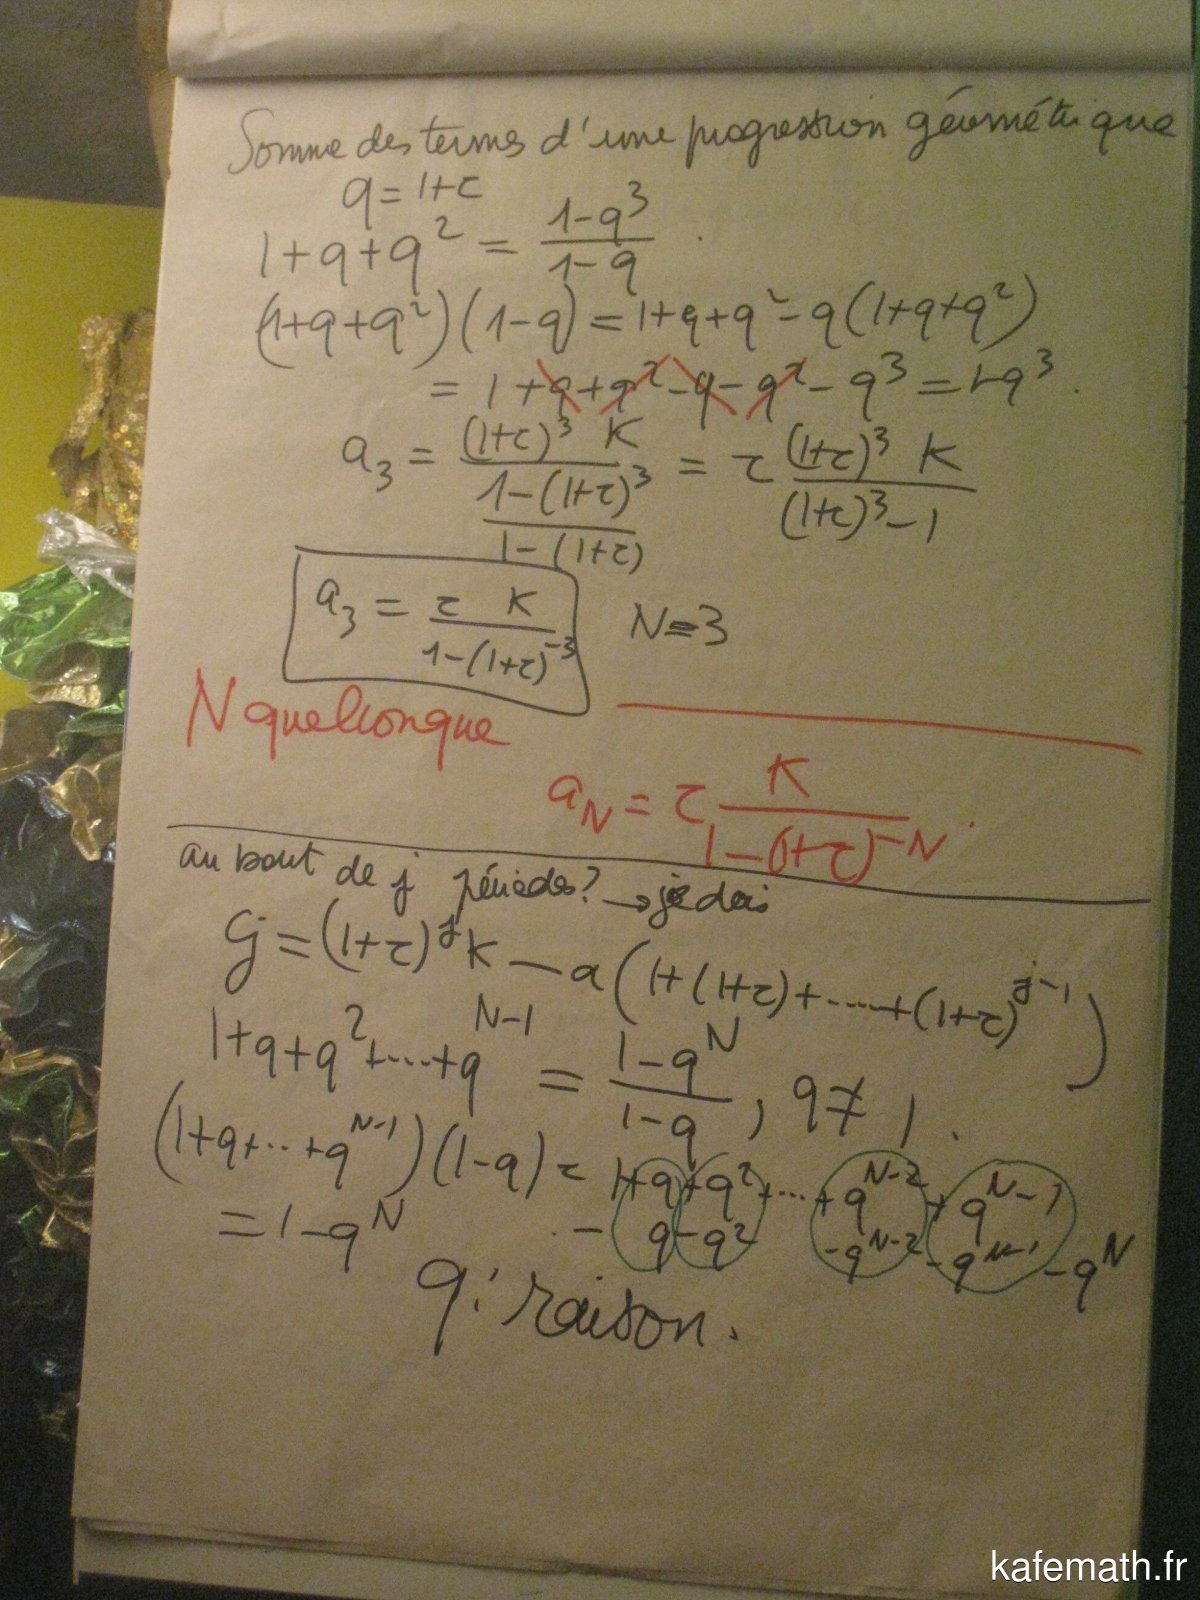 Somme des termes d'une progression géométrique
q = 1+τ
1+q+q² = (1-q³)/(1-q)
(1+q+q²)(1-q) = 1+q+q² - q(1+q+q²)
= 1+q+q²-q-q²-q³ = 1-q³.
a₃ = ((1+τ)³ K)/((1-(1+τ)³)/(1-(1+τ))) = τ ((1+τ)³ K)/((1+τ)³-1)
a₃ = (τ K)/(1-(1+τ)⁻³) N=3
N quelconque
a_N = τ K/(1-(1+τ)^-N).
au bout de j périodes? → je dois
Cj = (1+τ)^j K - a(1+(1+τ)+----+(1+τ)^(j-1))
1+q+q²+...+q^(N-1) = (1-q^N)/(1-q), q≠1.
(1+q+...+q^(N-1))(1-q) = 1+q+q²+...+q^(N-2)+q^(N-1)
- q-q² -q^(N-2) -q^(N-1) -q^N
= 1-q^N
q: raison.
kafemath.fr